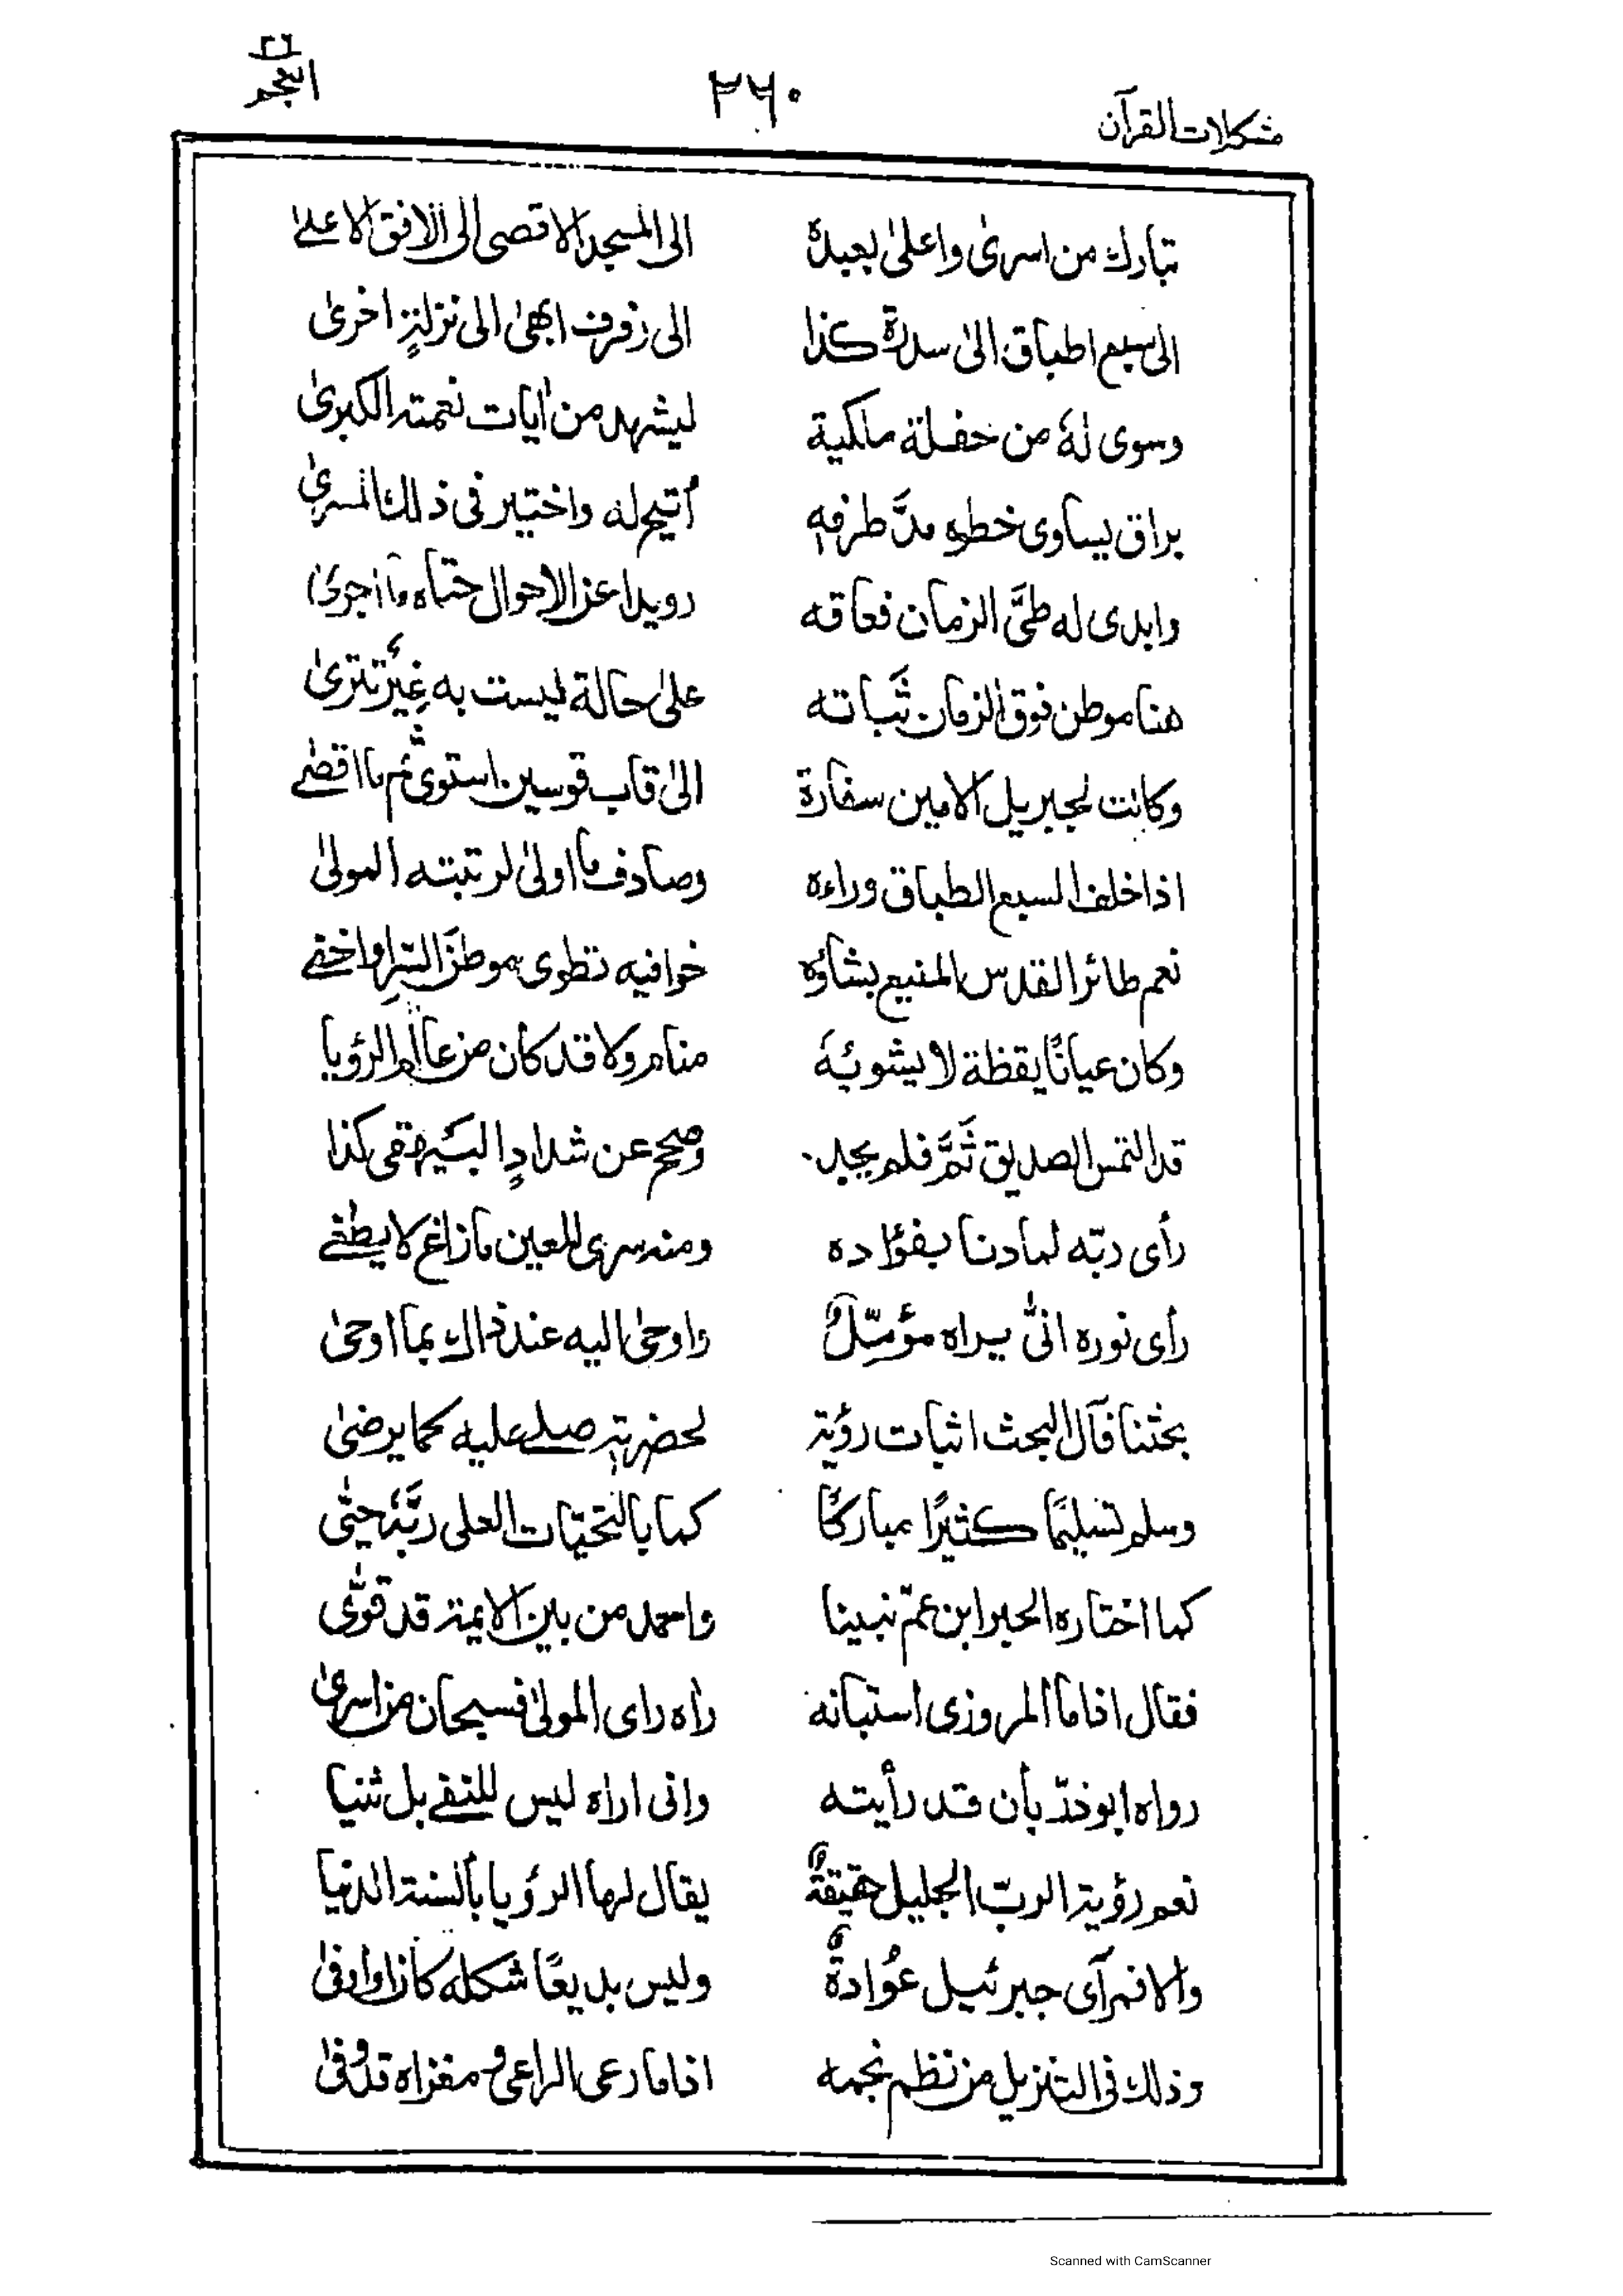 مشكلات القرآن ٢٦٠ النجم ٢٦
تبارك من اسرىٰ واعلىٰ بعبدهٖ الى المسجد الاقصى الى الافق الاعلےٰ
الى سبع اطباق الىٰ سدرة كذا الى رفرف ابهىٰ الى نزلةٍ اخرىٰ
وسوى لهٗ من حفلة ملكية ليشهد من اٰيات نعمته الكبرىٰ
براق يساوى خطوه مدَّ طرفهٖ اُتيح له واختير فى ذلك المسرىٰ
وابدى له طيَّ الزمان فعاقه رويدا عن الاحوال حتاه ما اجرىٰ
هنا موطن فوق الزمان ثَباته علىٰ حالة ليست به غِيَرُ تترىٰ
وكانت لجبريل الامين سفارة الىٰ قاب قوسين استوىٰ ثم ما اقصٰے
اذا خلف السبع الطباق وراءه وصادف ما اولىٰ لرتبته المولىٰ
نعم طائر القدس المنيع بشأوه خوافيه تطوى موطنَ السّرِاواخفے
وكان عيانًا يقظة لا يشوبُهٗ منام ولا قد كان من عالم الرؤيا
قد التمس الصديق ثَمَّ فلم يجد وصحح عن شدادٍ البيهقى كذا
رأى ربّه لما دنا بفؤاده ومنه سرى للعين ما زاغ لا يطغے
رأى نوره انىّٰ يراه مؤمّلٌ واوحىٰ اليه عند ذاك بما اوحىٰ
بحثنا فآل البحث اثبات رؤية لحضرتهٖ صلے عليه كما يرضىٰ
وسلم تسليمًا كثيرًا مباركًا كما بالتحيّات العلى ربَّهٗ حيّٰى
كما اختاره الحبر ابن عمّ نبينا واحمد من بين الائمة قد قوّٰى
فقال اذا ما المروزى استبانه رأه راى المولىٰ فسبحان من اسرىٰ
رواه ابو ذرّ بأن قد رأيته وانى اراه ليس للنفے بل ثنيا
نعم رؤية الربّ الجليل حقيقةٌ يقال لها الرؤيا بألسنة الدنيا
والا فمرآى جبرئيل عُوادةٌ وليس بديعًا شكله كان او اوفىٰ
وذلك فى التنزيل من نظم نجمه اذا ما رعى الراعى ومغزاه قد وفىٰ
Scanned with CamScanner